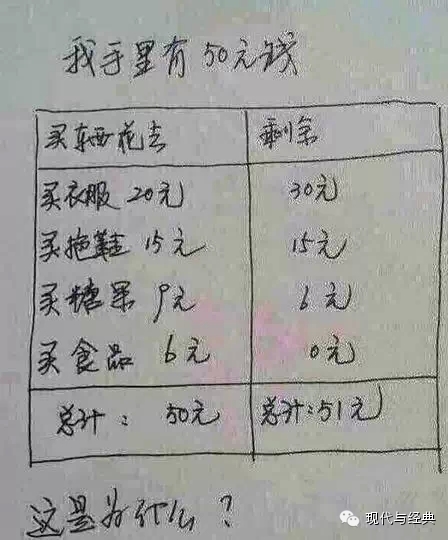 我手里有50元钱
买东西花去 剩余
买衣服 20元 30元
买拖鞋 15元 15元
买糖果 9元 6元
买食品 6元 0元
总计: 50元 总计:51元
这是为什么?
现代与经典